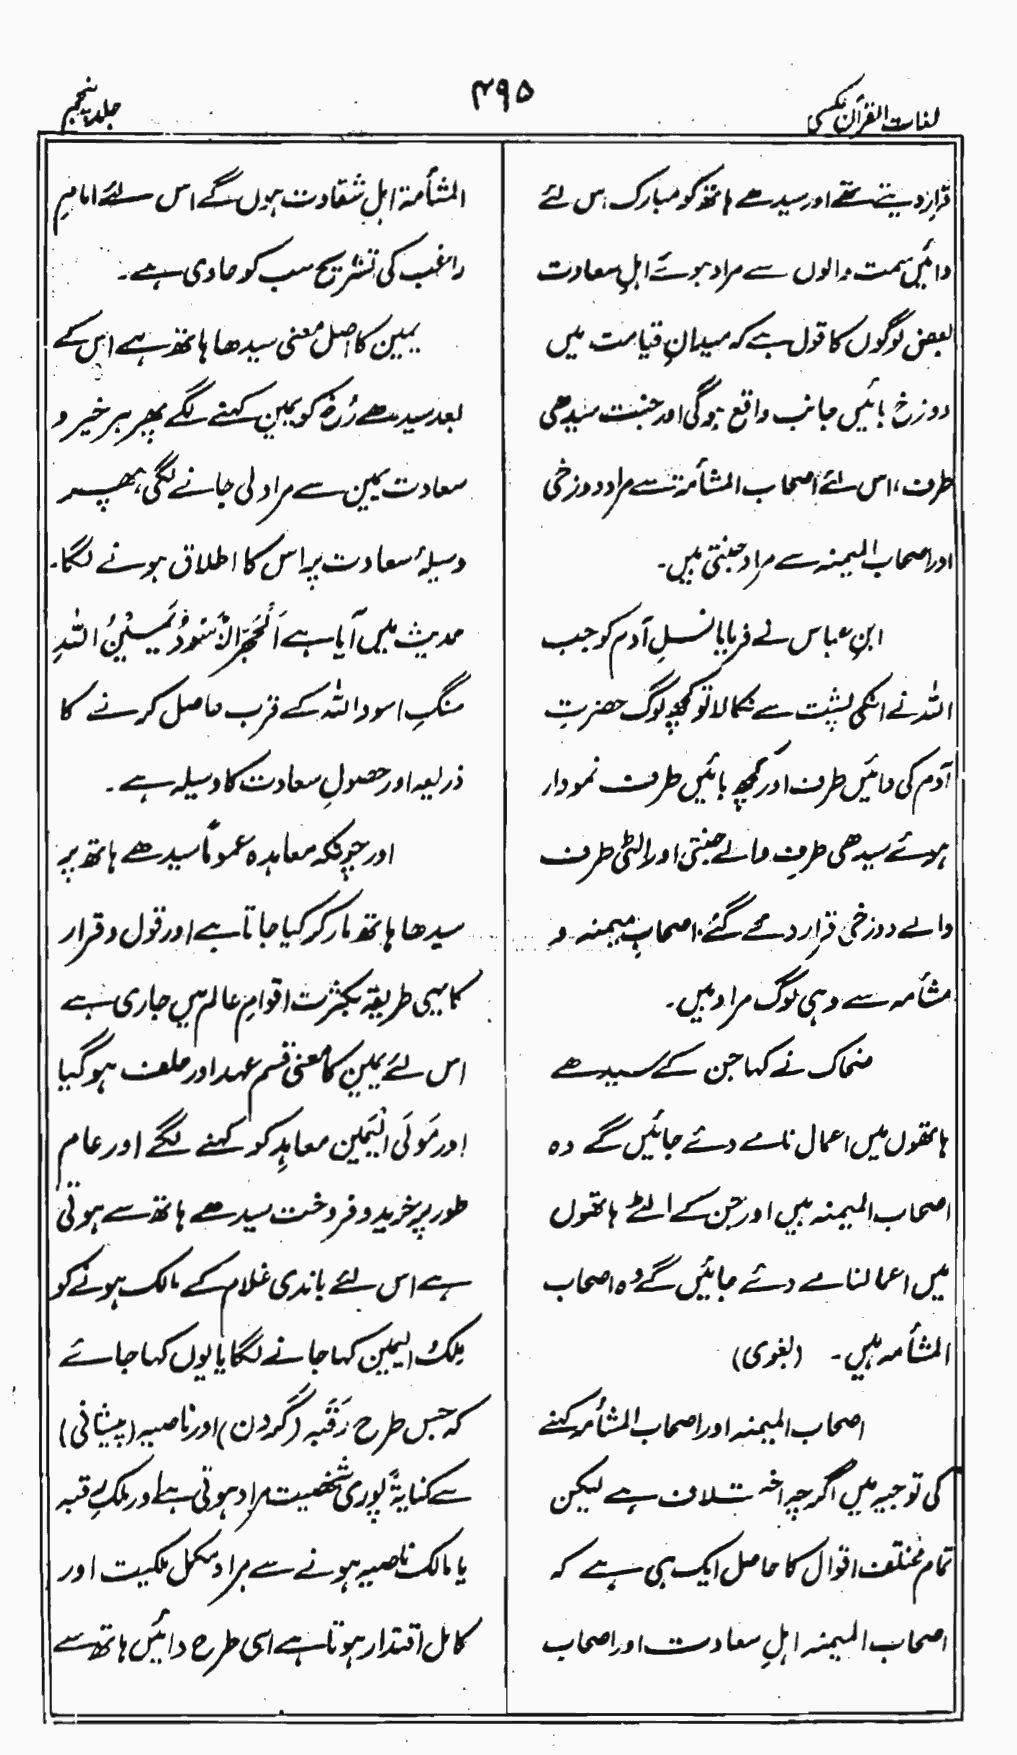 لغات القرآن عکسی
۴۹۵
جلد پنجم
قرار دیتے تھے اور سیدھے ہاتھ کو مبارک اس لئے
دائیں سمت والوں سے مراد ہوئے اہلِ سعادت
بعض لوگوں کا قول ہے کہ میدانِ قیامت میں
دوزخ بائیں جانب واقع ہوگی اور جنت سیدھی
طرف، اس لئے اصحاب المشأمۃ سے مراد دوزخی
اور اصحاب المیمنہ سے مراد جنتی ہیں۔
ابنِ عباس نے فرمایا نسلِ آدم کو جب
اللہ نے انکی پشت سے نکالا تو کچھ لوگ حضرتِ
آدم کی دائیں طرف اور کچھ بائیں طرف نمودار
ہوئے سیدھی طرف والے جنتی اور الٹی طرف
والے دوزخی قرار دئے گئے، اصحابِ میمنہ و
مشأمہ سے وہی لوگ مراد ہیں۔
ضحاک نے کہا جن کے سیدھے
ہاتھوں میں اعمال نامے دئے جائیں گے وہ
اصحاب المیمنہ ہیں اور جن کے الٹے ہاتھوں
میں اعمالنامے دئے جائیں گے وہ اصحاب
المشأمہ ہیں۔ (بغوی)
اصحاب المیمنہ اور اصحاب المشأمہ کہنے
کی توجیہ میں اگرچہ اختلاف ہے لیکن
تمام مختلف اقوال کا حاصل ایک ہی ہے کہ
اصحاب المیمنہ اہلِ سعادت اور اصحاب
المشأمۃ اہلِ شقادت ہوں گے اس لئے امامِ
راغب کی تشریح سب کو حاوی ہے۔
یمین کا اصل معنی سیدھا ہاتھ ہے اس کے
بعد سیدھے رُخ کو یمین کہنے لگے پھر ہر خیر و
سعادت یمین سے مراد لی جانے لگی، پھر
وسیلۂ سعادت پر اس کا اطلاق ہونے لگا۔
حدیث میں آیا ہے اَلْحَجَرُ الْاَسْوَدُ یَمِیْنُ اللّٰہِ
سنگِ اسود اللہ کے قرب حاصل کرنے کا
ذریعہ اور حصولِ سعادت کا وسیلہ ہے۔
اور چونکہ معاہدہ عموماً سیدھے ہاتھ پر
سیدھا ہاتھ مار کر کیا جاتا ہے اور قول و قرار
کا یہی طریقہ بکثرت اقوامِ عالم میں جاری ہے
اس لئے یمین کا معنی قسم عہد اور حلف ہو گیا
اور مَوْلَی الْیَمِین معاہِد کو کہنے لگے اور عام
طور پر خرید و فروخت سیدھے ہاتھ سے ہوتی
ہے اس لئے باندی غلام کے مالک ہونے کو
مِلکُ الیمین کہا جانے لگا یا یوں کہا جائے
کہ جس طرح رَقَبہ (گردن) اور ناصیہ (پیشانی)
سے کنایۃً پوری شخصیت مراد ہوتی ہے اور ملکِ رقبہ
یا مالک ناصیہ ہونے سے مراد مکمل ملکیت اور
کامل اقتدار ہوتا ہے اسی طرح دائیں ہاتھ سے